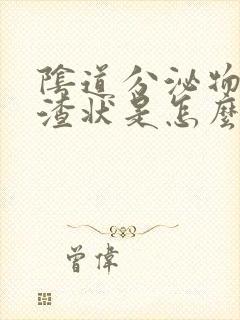 陰道分泌物
渣状是怎麼
曾偉